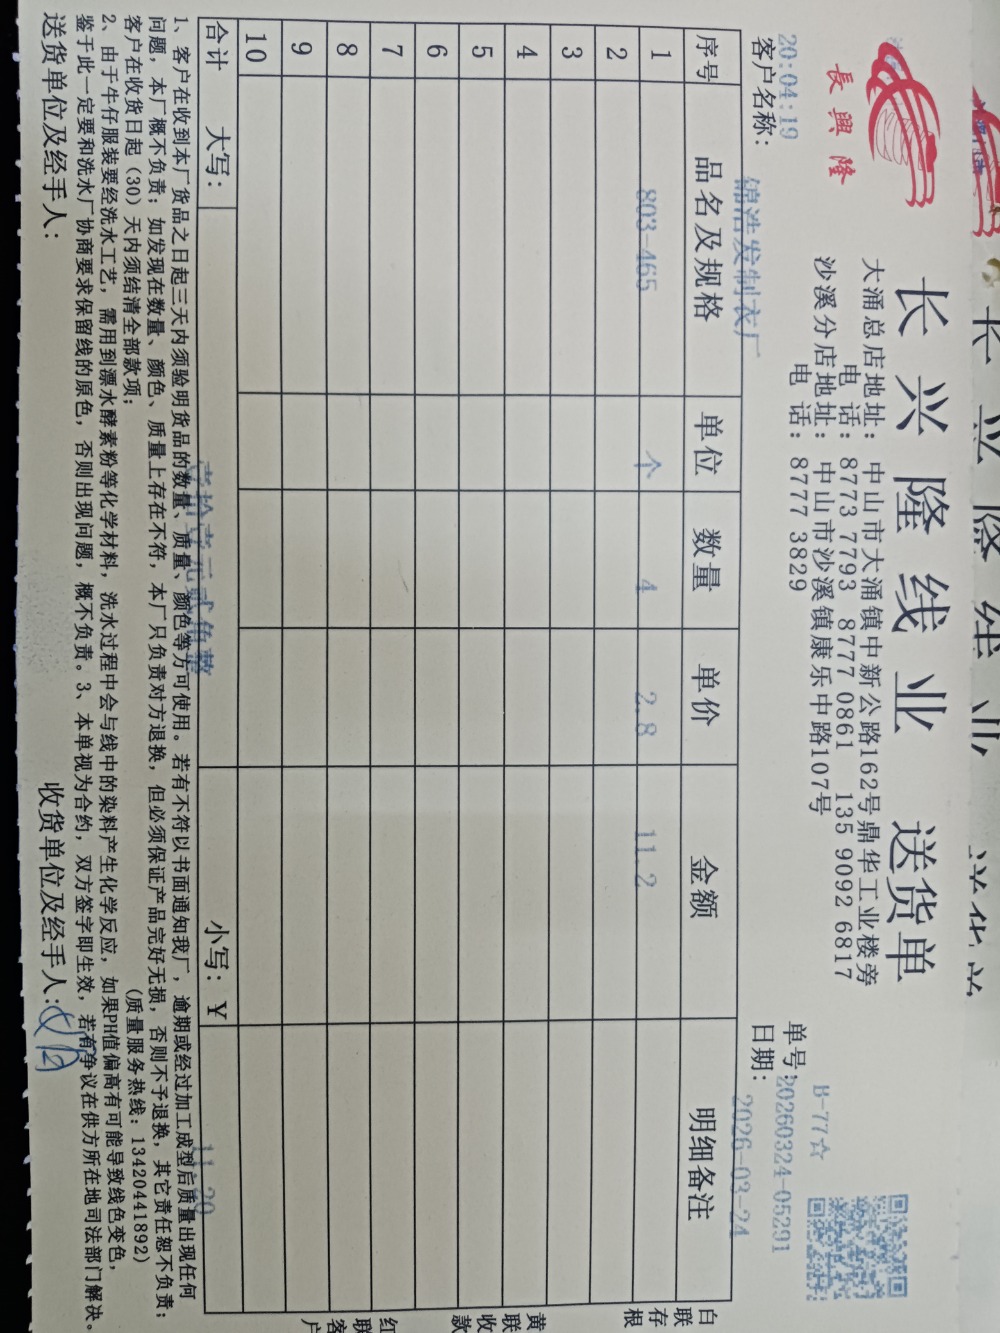 長興隆
长兴隆线业 送货单
大涌总店地址：中山市大涌镇中新公路162号鼎华工业楼旁
电 话：8773 7793 8777 0861 135 9092 6817
沙溪分店地址：中山市沙溪镇康乐中路107号
电 话：8777 3829
B-77☆
20:04:19
单号：20260324-05291
客户名称：锦浩发制衣厂
日期：2026-03-24
序号 品名及规格 单位 数量 单价 金额 明细备注
1 803-465 个 4 2.8 11.2
2
3
4
5
6
7
8
9
10
合计 大写：壹拾壹元贰角整 小写：￥11.20
1、客户在收到本厂货品之日起三天内须验明货品的数量、质量、颜色等方可使用。若有不符以书面通知我厂，逾期或经过加工成型后质量出现任何
问题，本厂概不负责；如发现在数量、颜色、质量上存在不符，本厂只负责对方退换，但必须保证产品完好无损，否则不予退换，其它责任恕不负责；
客户在收货日起（30）天内须结清全部款项； （质量服务热线：13420441892）
2、由于牛仔服装要经洗水工艺，需用到漂水酵素粉等化学材料，洗水过程中会与线中的染料产生化学反应，如果PH值偏高有可能导致线色变色，
鉴于此一定要和洗水厂协商要求保留线的原色，否则出现问题，概不负责。3、本单视为合约，双方签字即生效，若有争议在供方所在地司法部门解决。
送货单位及经手人： 收货单位及经手人：
白联存根
黄联收款
红联客户